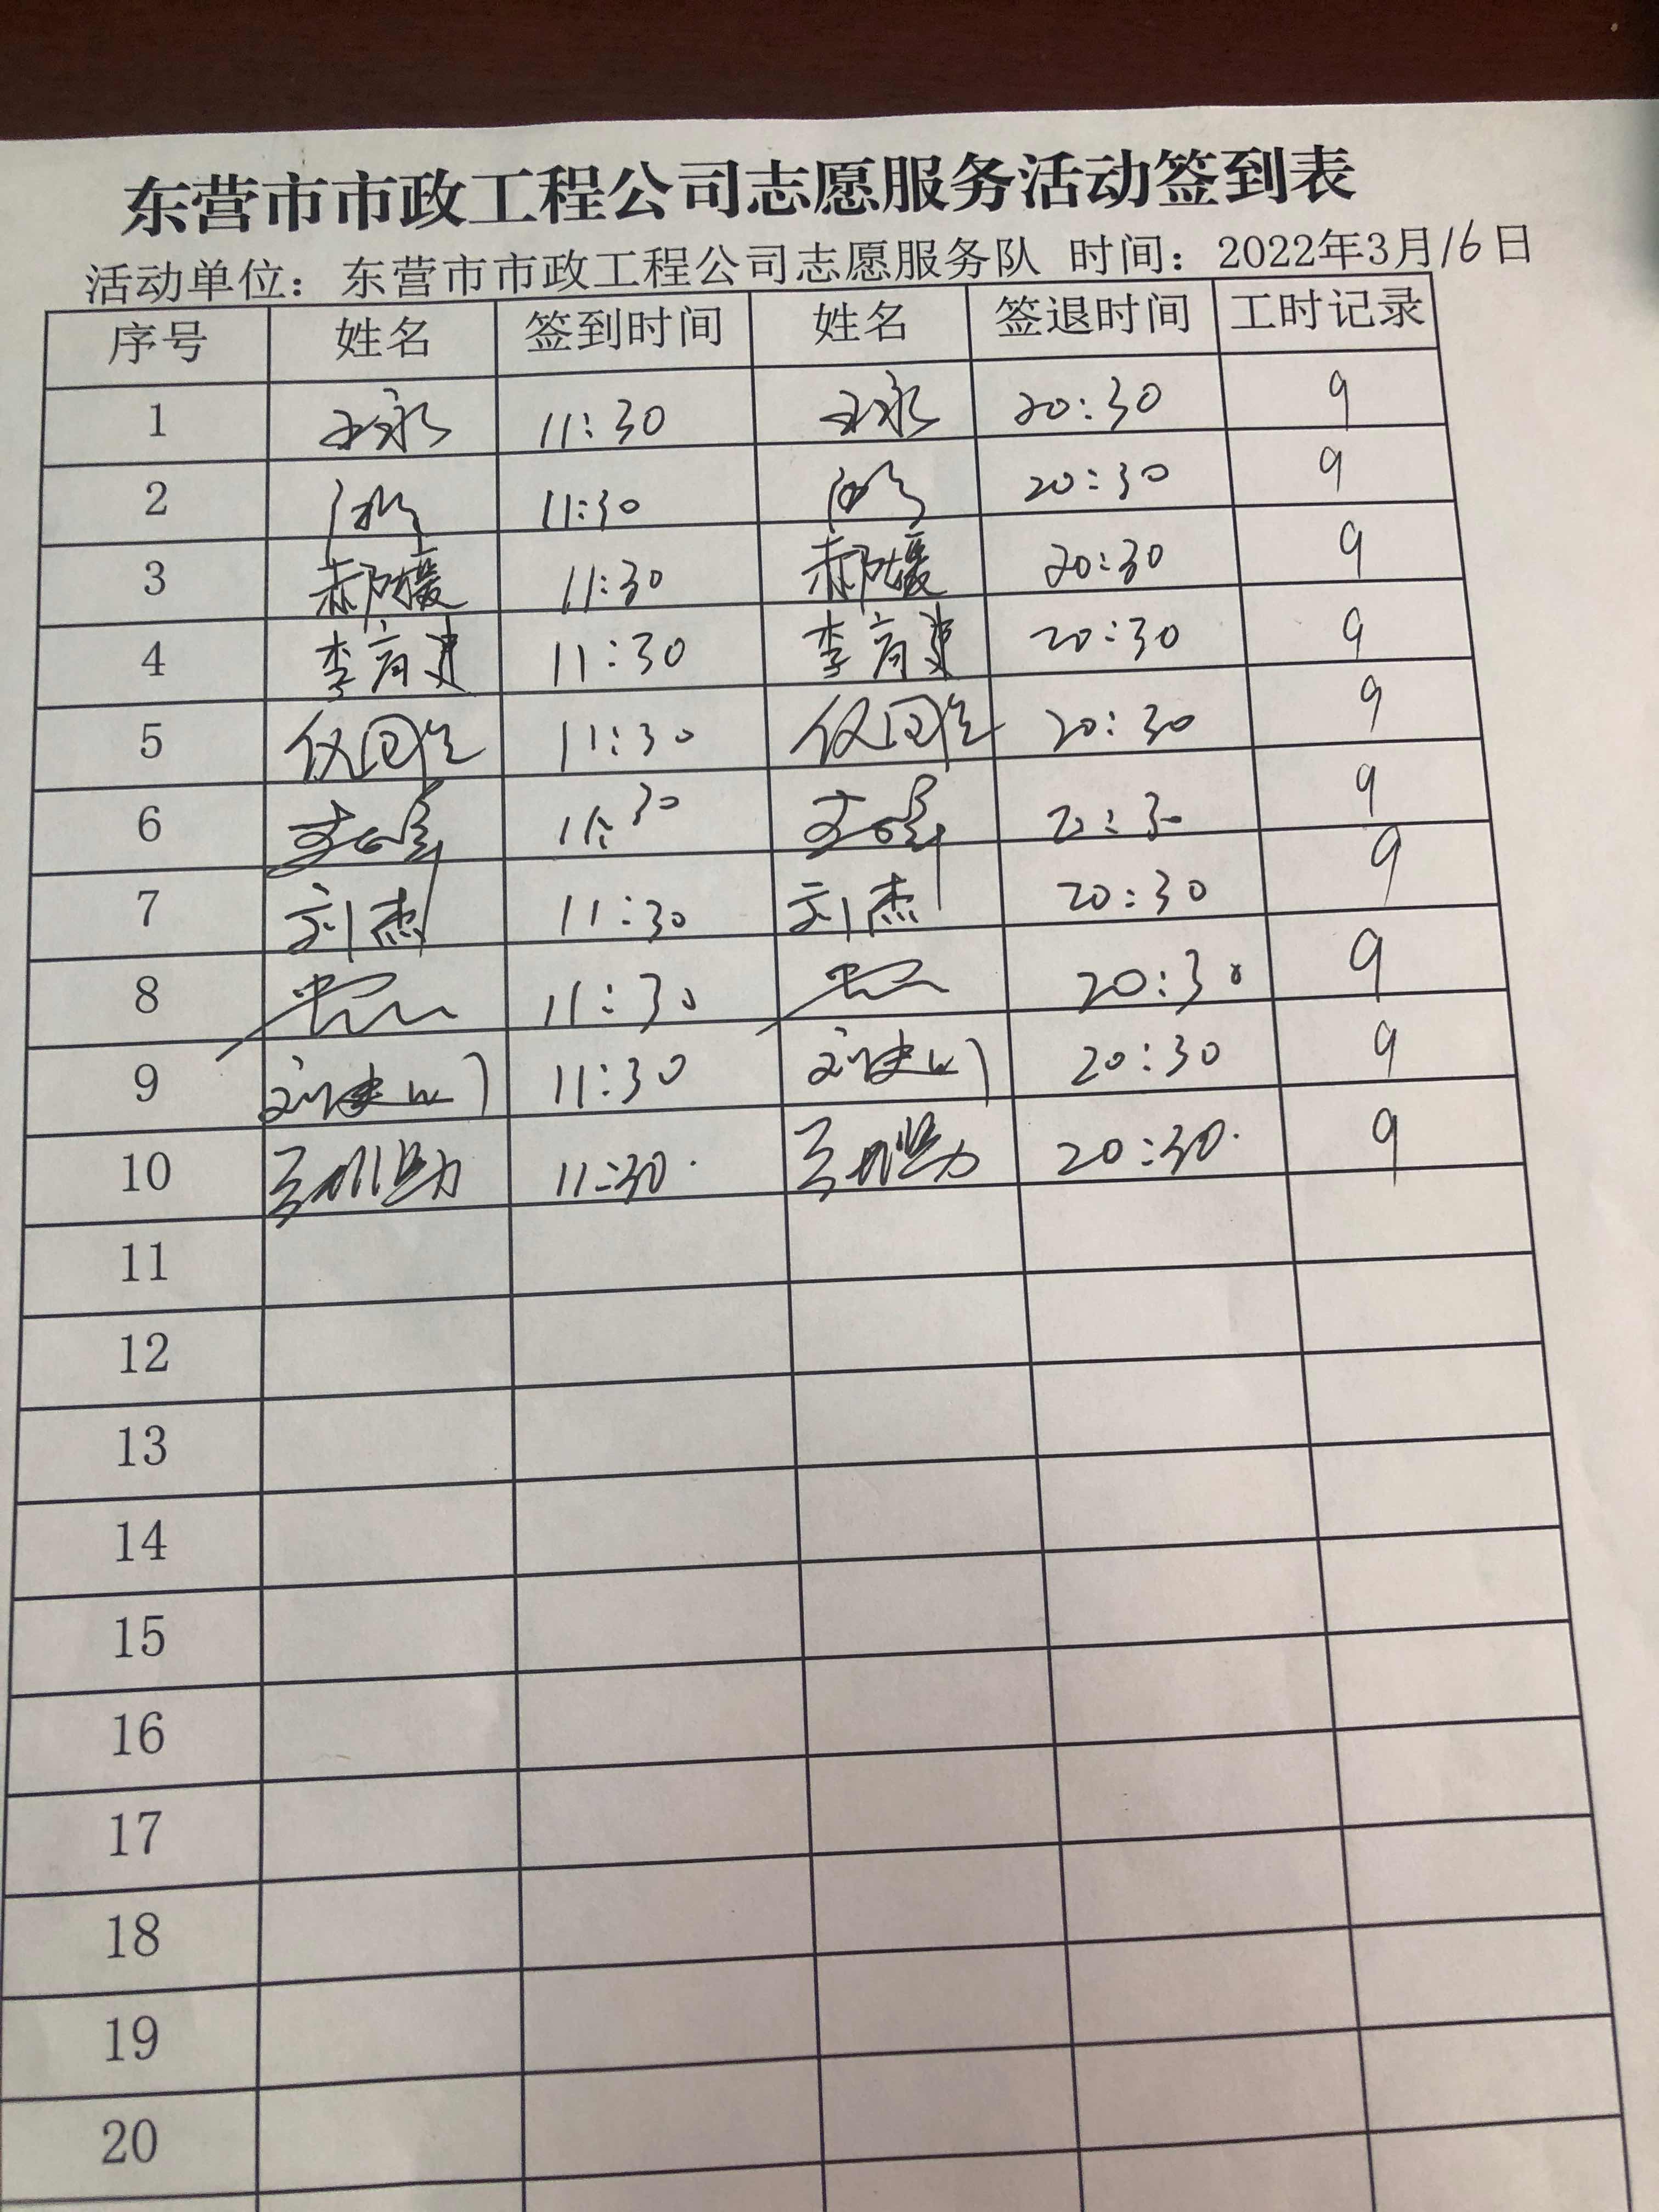 东营市市政工程公司志愿服务活动签到表
活动单位：东营市市政工程公司志愿服务队 时间：2022年3月16日
序号 姓名 签到时间 姓名 签退时间 工时记录
1 王永 11:30 王永 20:30 9
2 11:30 20:30 9
3 郝媛 11:30 郝媛 20:30 9
4 李育建 11:30 李育建 20:30 9
5 仪回生 11:30 仪回生 20:30 9
6 11:30 20:30 9
7 刘杰 11:30 刘杰 20:30 9
8 11:30 20:30 9
9 11:30 20:30 9
10 11:30. 20:30. 9
11
12
13
14
15
16
17
18
19
20